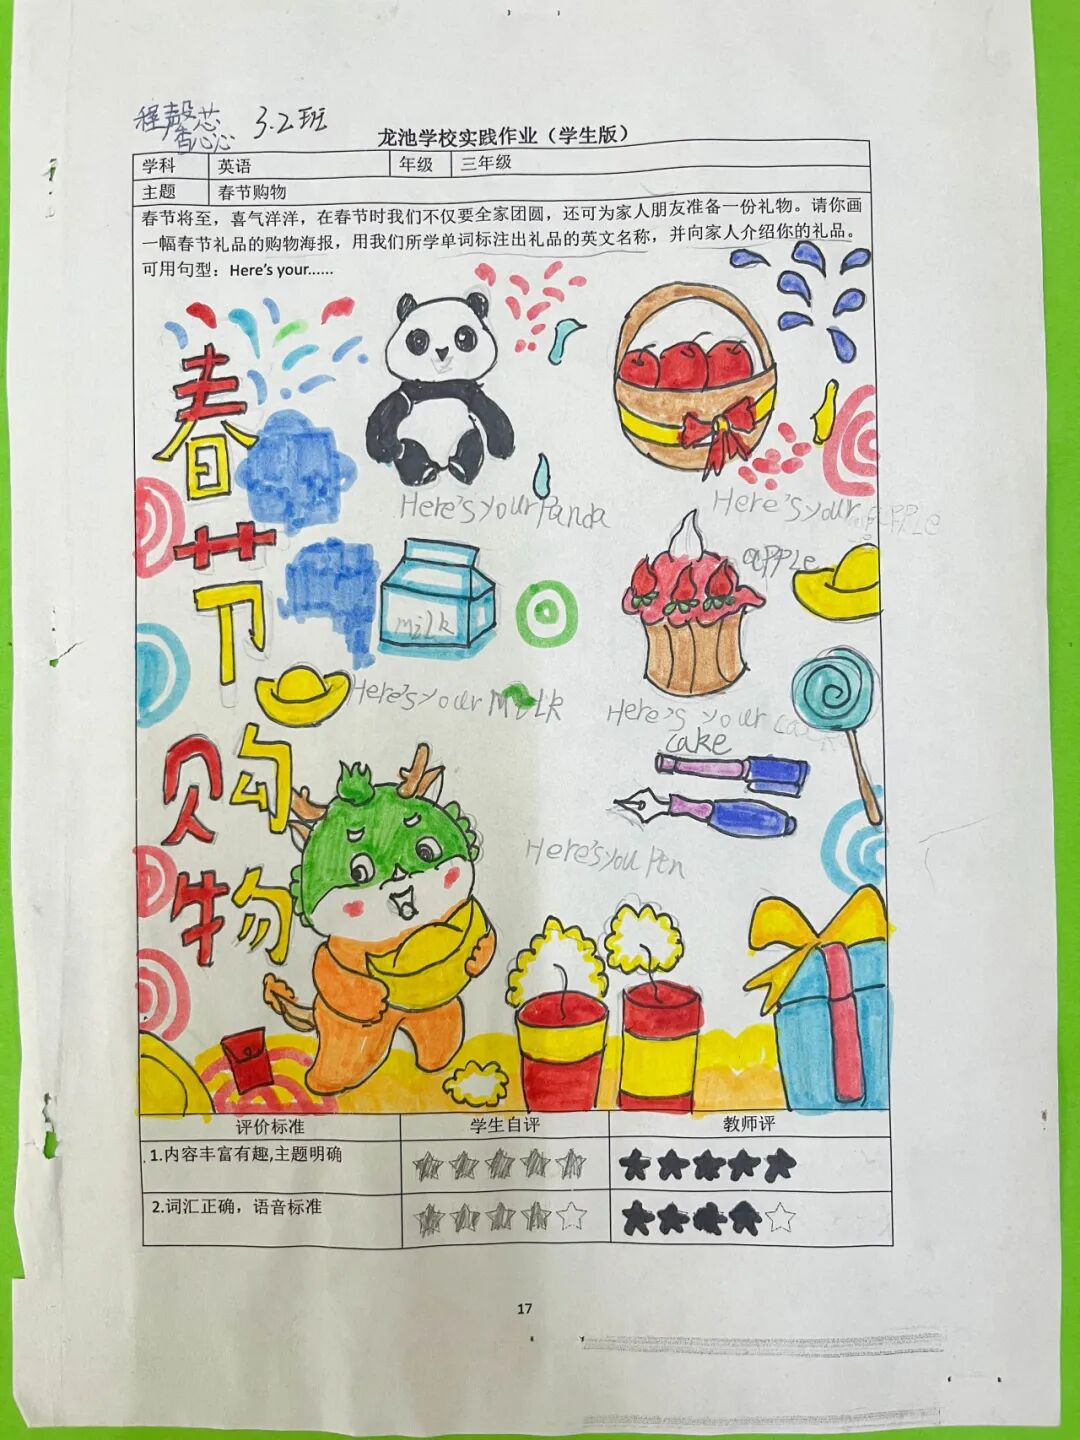 程馨芯 3.2班
龙池学校实践作业（学生版）
学科 英语 年级 三年级
主题 春节购物
春节将至，喜气洋洋，在春节时我们不仅要全家团圆，还可为家人朋友准备一份礼物。请你画
一幅春节礼品的购物海报，用我们所学单词标注出礼品的英文名称，并向家人介绍你的礼品。
可用句型：Here's your......
春节购物
Here's your Panda
Here's your apple
apple
milk
Here's your milk
Here's your
cake
Here's you pen
评价标准 学生自评 教师评
1.内容丰富有趣,主题明确
2.词汇正确，语音标准
17